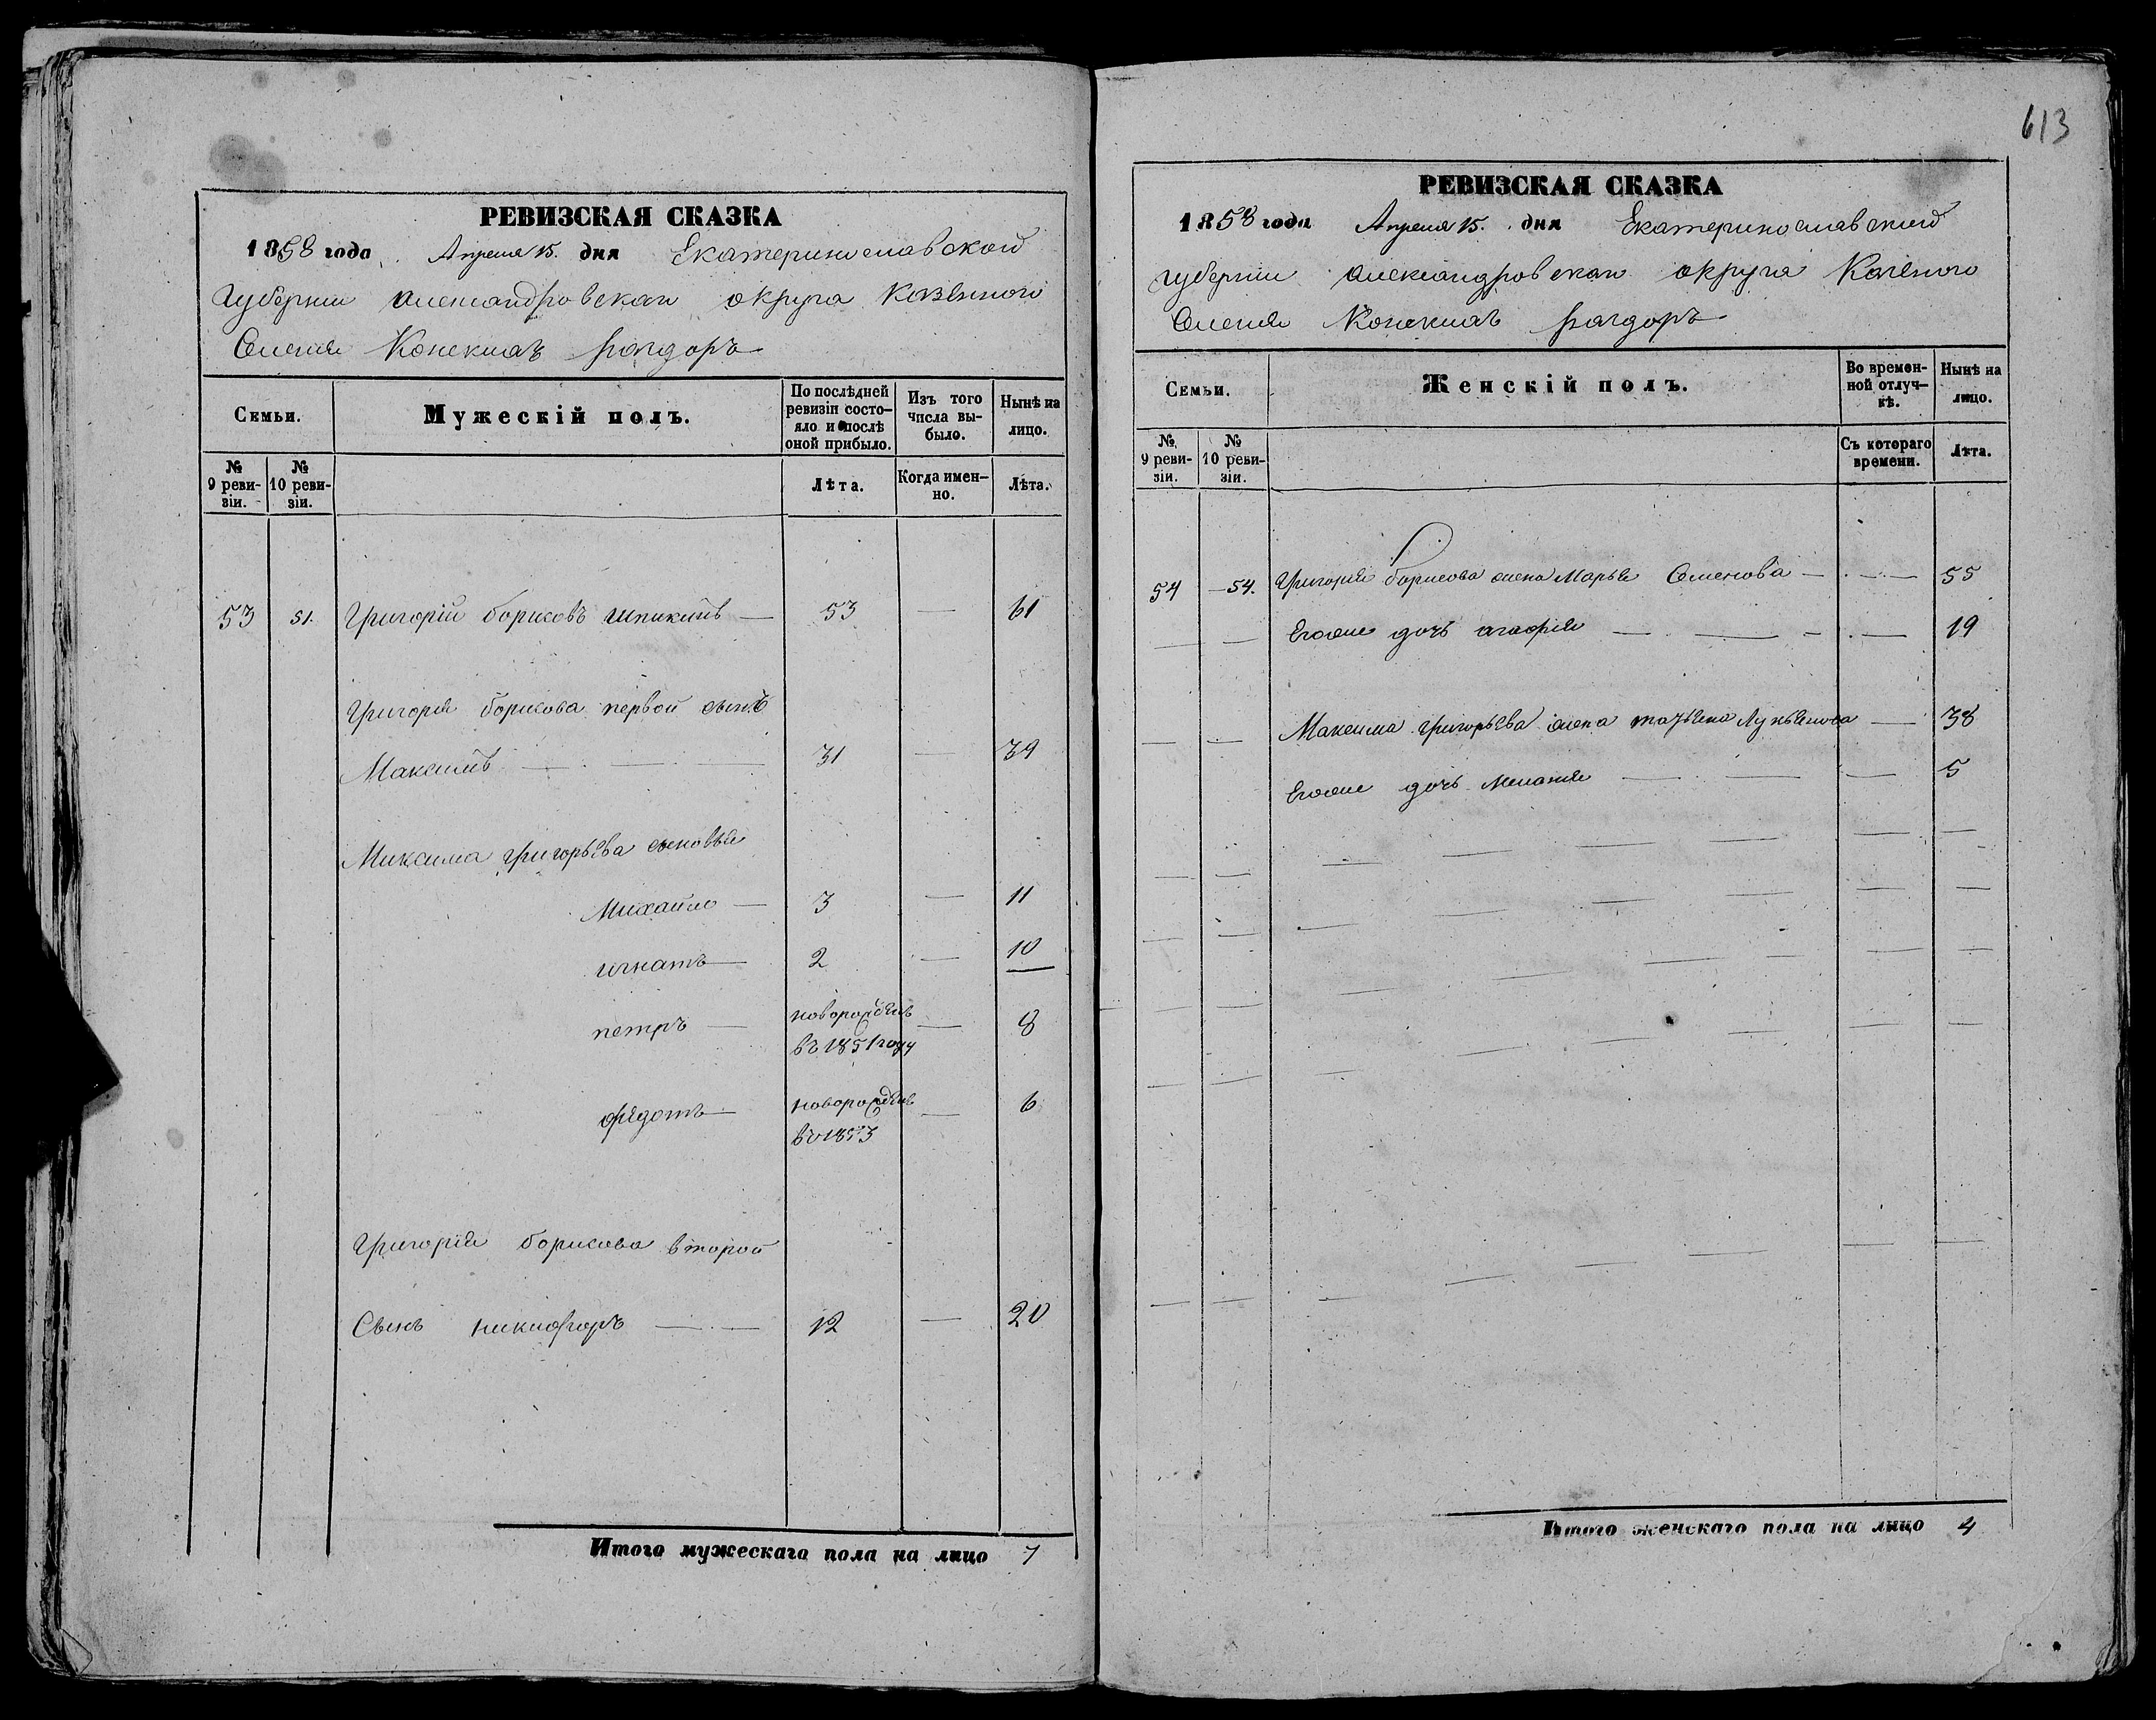 613
РЕВИЗСКАЯ СКАЗКА
1858 года Апреля 15. дня Екатеринославской
губернии александровскаго округа Казеннаго
Селения Конскихъ раздоръ
Семьи. Мужескій полъ. По послѣдней ревизіи состояло и послѣ оной прибыло. Изъ того числа выбыло. Нынѣ на лицо.
№ 9 ревизіи. № 10 ревизіи. Лѣта. Когда именно. Лѣта.
53 51. Григорій борисовъ — 53 — 61
Григория борисова первой сынъ
Максимъ — 31 — 39
Максима григорьева сыновья
Михайло — 3 — 11
игнатъ — 2 — 10
петръ — новорожденъ въ 1851 году — 8
федотъ — новорожденъ въ 1853 — 6
Григория борисова второй
Сынъ никифоръ — 12 — 20
Итого мужескаго пола на лицо 7
РЕВИЗСКАЯ СКАЗКА
1858 года Апреля 15. дня Екатеринославской
губернии александровскаго округа Казеного
Селения Конскихъ раздоръ
Семьи. Женскій полъ. Во временной отлучкѣ. Нынѣ на лицо.
№ 9 ревизіи. № 10 ревизіи. Съ котораго времени. Лѣта.
54 — 54. Григория борисова жена Марья Семенова — 55
Егоже дочь агафия — 19
Максима григорьева жена татьяна Лукьянова — 38
Егоже дочь Мелания — 5
Итого женскаго пола на лицо 4